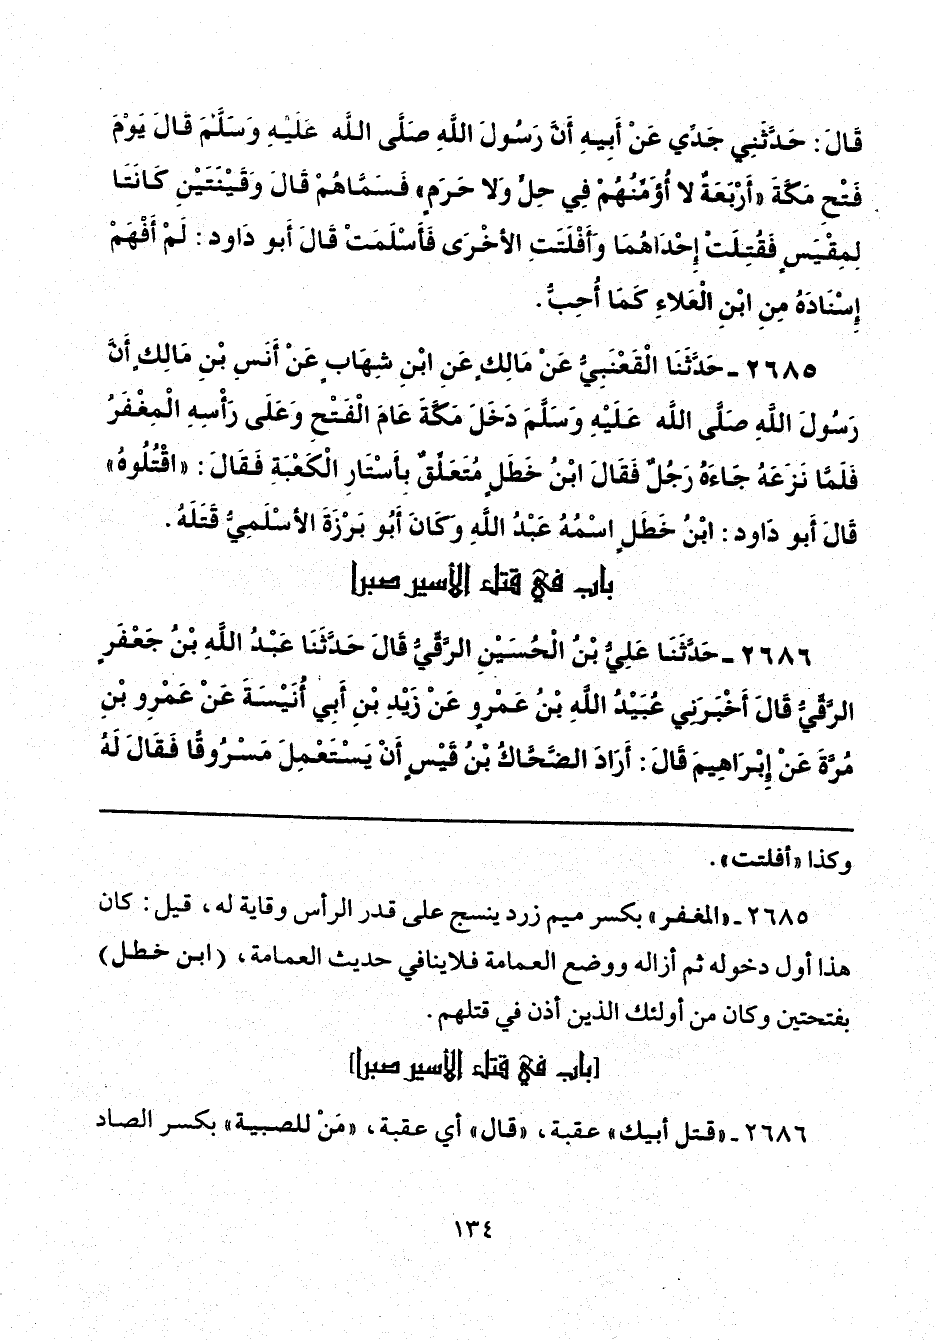 قَالَ: حَدَّثَنِي جَدِّي عَنْ أَبِيهِ أَنَّ رَسُولَ اللَّهِ صَلَّى اللَّه عَلَيْهِ وَسَلَّمَ قَالَ يَوْمَ
فَتْحِ مَكَّةَ «أَرْبَعَةٌ لا أُؤَمِّنُهُمْ فِي حِلٍّ وَلا حَرَمٍ» فَسَمَّاهُمْ قَالَ وَقَيْنَتَيْنِ كَانَتَا
لِمِقْيَسٍ فَقُتِلَتْ إِحْدَاهُمَا وَأَفْلَتَتِ الأخْرَى فَأَسْلَمَتْ قَالَ أبو دَاود: لَمْ أَفْهَمْ
إِسْنَادَهُ مِنِ ابْنِ الْعَلاءِ كَمَا أُحِبُّ.
٢٦٨٥ ـ حَدَّثَنَا الْقَعْنَبِيُّ عَنْ مَالِكٍ عَنِ ابْنِ شِهَابٍ عَنْ أَنَسِ بْنِ مَالِكٍ أَنَّ
رَسُولَ اللَّهِ صَلَّى اللَّه عَلَيْهِ وَسَلَّمَ دَخَلَ مَكَّةَ عَامَ الْفَتْحِ وَعَلَى رَأْسِهِ الْمِغْفَرُ
فَلَمَّا نَزَعَهُ جَاءَهُ رَجُلٌ فَقَالَ ابْنُ خَطَلٍ مُتَعَلِّقٌ بِأَسْتَارِ الْكَعْبَةِ فَقَالَ: «اقْتُلُوهُ»
قَالَ أَبو دَاود: ابْنُ خَطَلٍ اسْمُهُ عَبْدُ اللَّهِ وَكَانَ أَبُو بَرْزَةَ الأسْلَمِيُّ قَتَلَهُ.
باب في قتل الأسير صبرا
٢٦٨٦ ـ حَدَّثَنَا عَلِيُّ بْنُ الْحُسَيْنِ الرَّقِّيُّ قَالَ حَدَّثَنَا عَبْدُ اللَّهِ بْنُ جَعْفَرٍ
الرَّقِّيُّ قَالَ أَخْبَرَنِي عُبَيْدُ اللَّهِ بْنُ عَمْرٍو عَنْ زَيْدِ بْنِ أَبِي أُنَيْسَةَ عَنْ عَمْرِو بْنِ
مُرَّةَ عَنْ إِبْرَاهِيمَ قَالَ: أَرَادَ الضَّحَّاكُ بْنُ قَيْسٍ أَنْ يَسْتَعْمِلَ مَسْرُوقًا فَقَالَ لَهُ
وكذا «أفلتت».
٢٦٨٥ ـ «المغفر» بكسر ميم زرد ينسج على قدر الرأس وقاية له، قيل: كان
هذا أول دخوله ثم أزاله ووضع العمامة فلاينافي حديث العمامة، (ابن خطل)
بفتحتين وكان من أولئك الذين أذن في قتلهم.
[باب في قتل الأسير صبرا]
٢٦٨٦ ـ «قتل أبيك» عقبة، «قال» أي عقبة، «مَنْ للصبية» بكسر الصاد
١٣٤